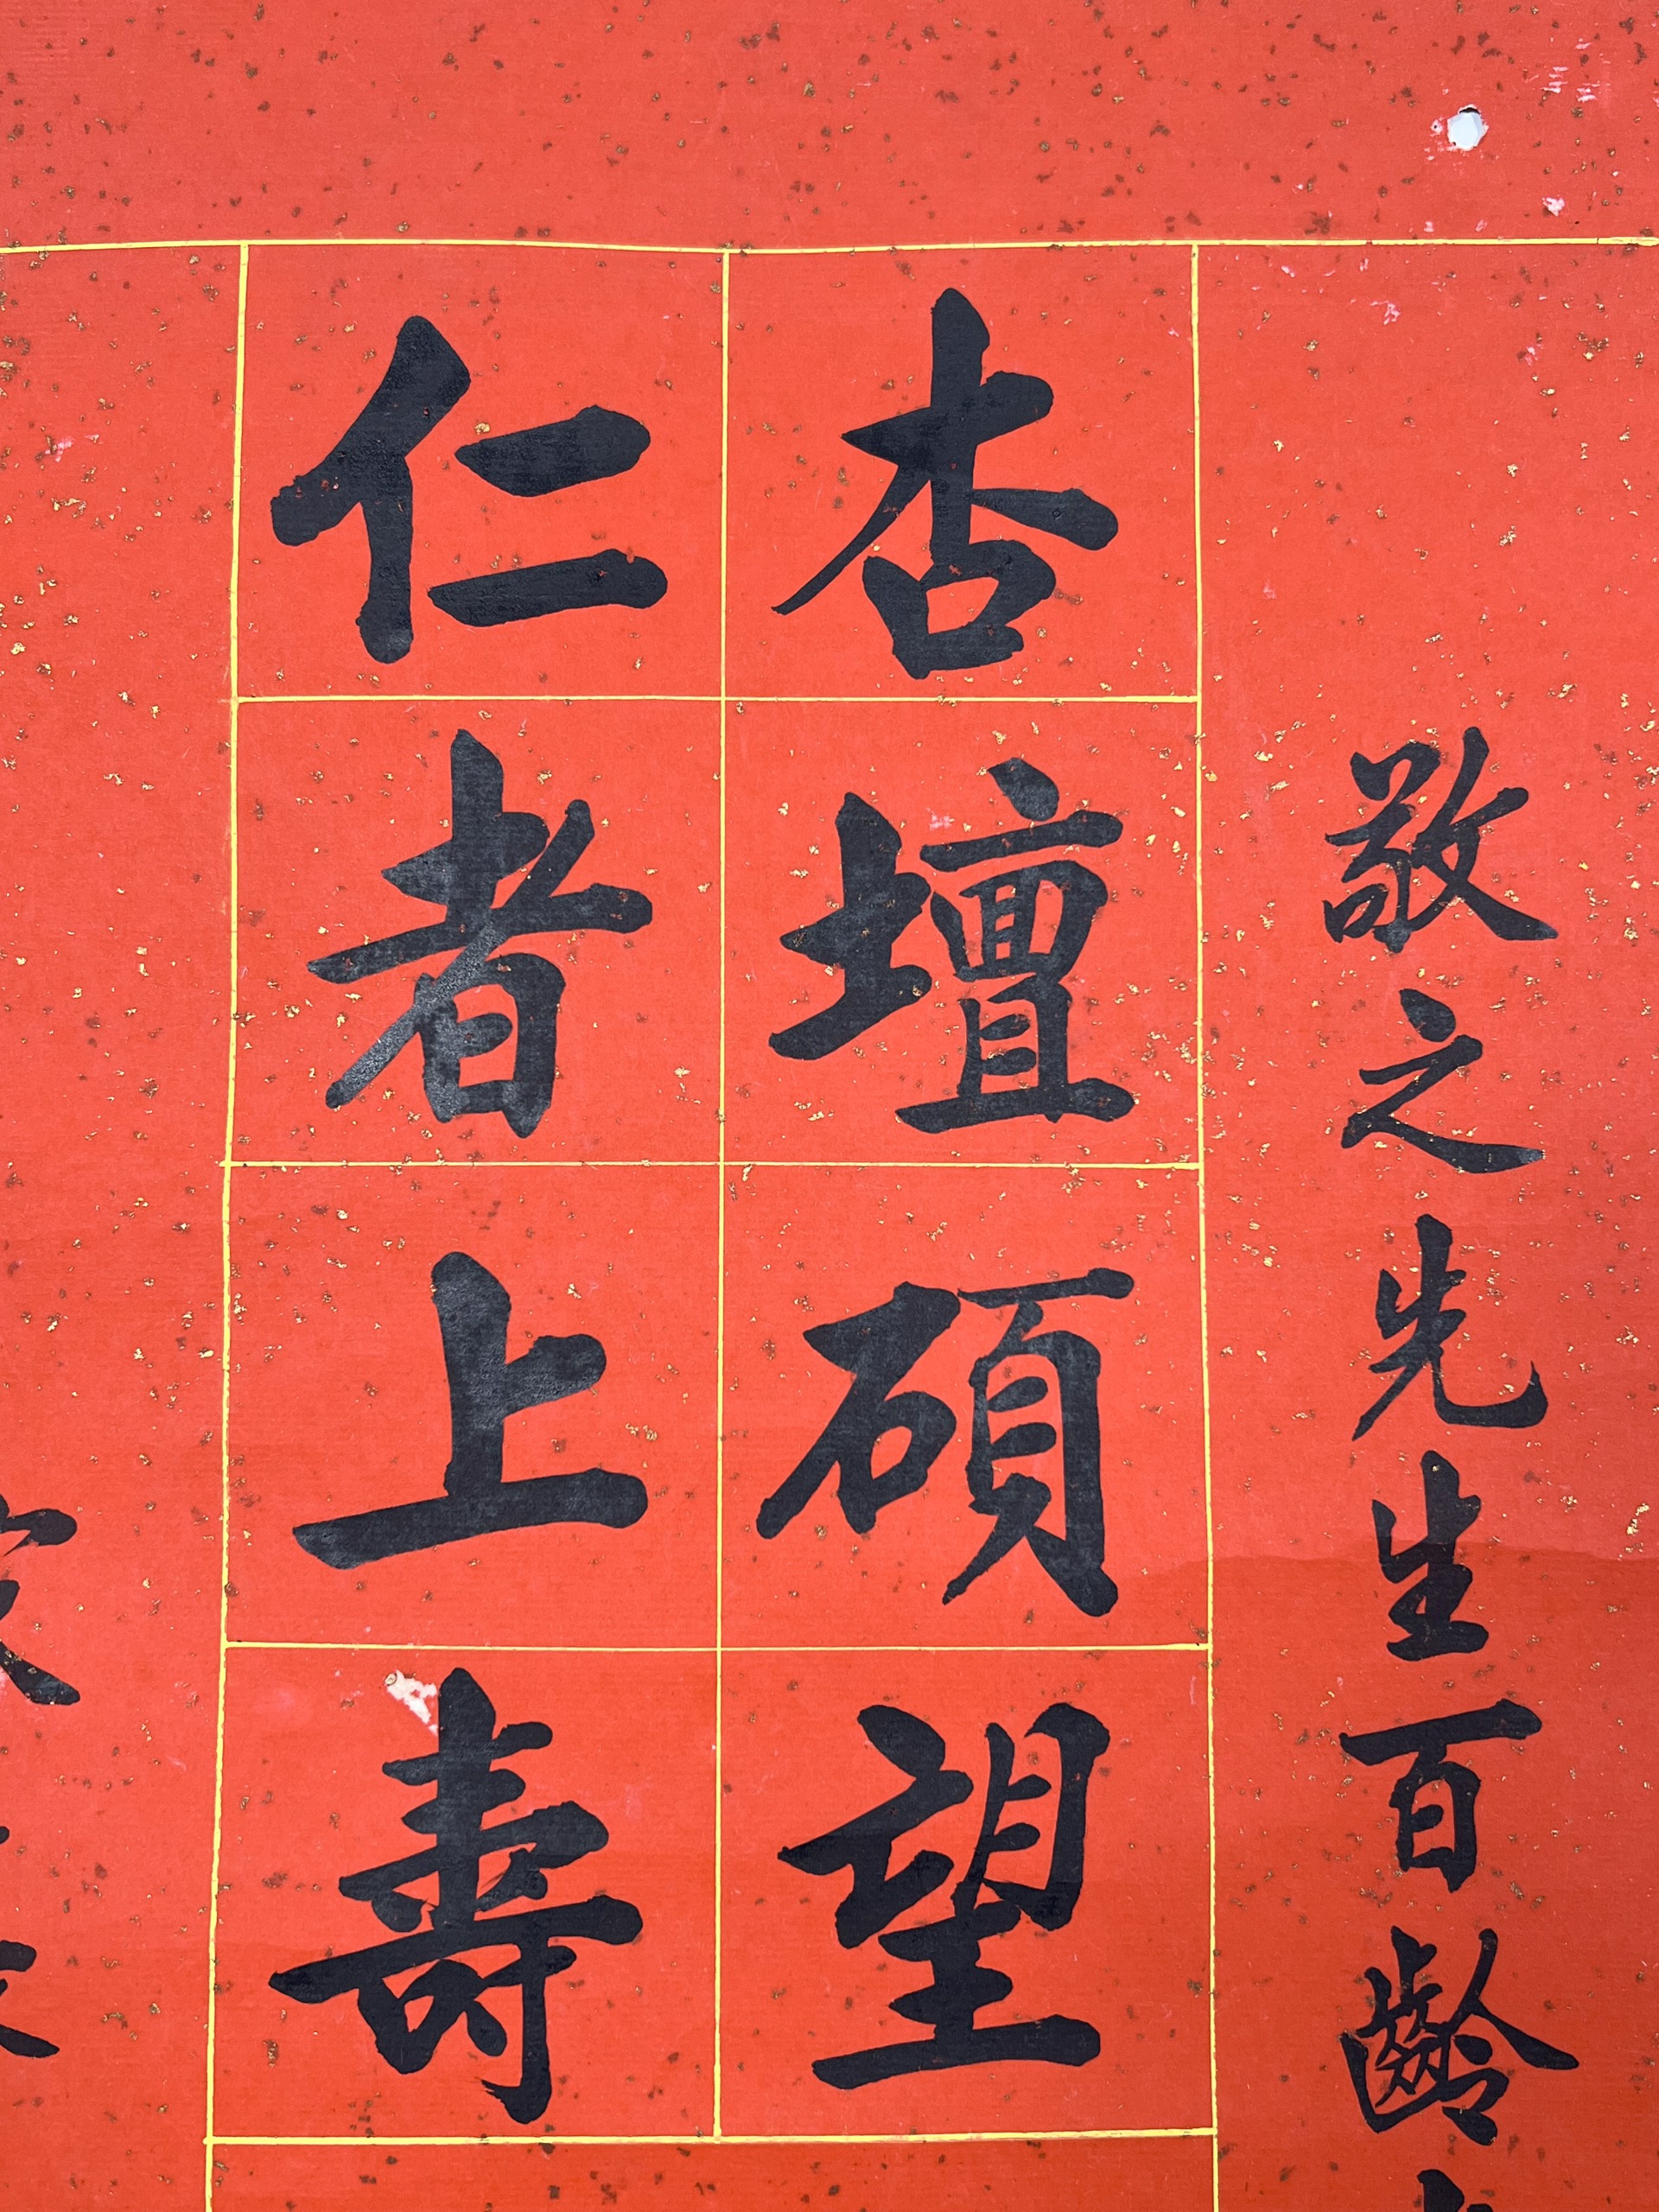 敬之先生百齡
杏壇碩望
仁者上壽